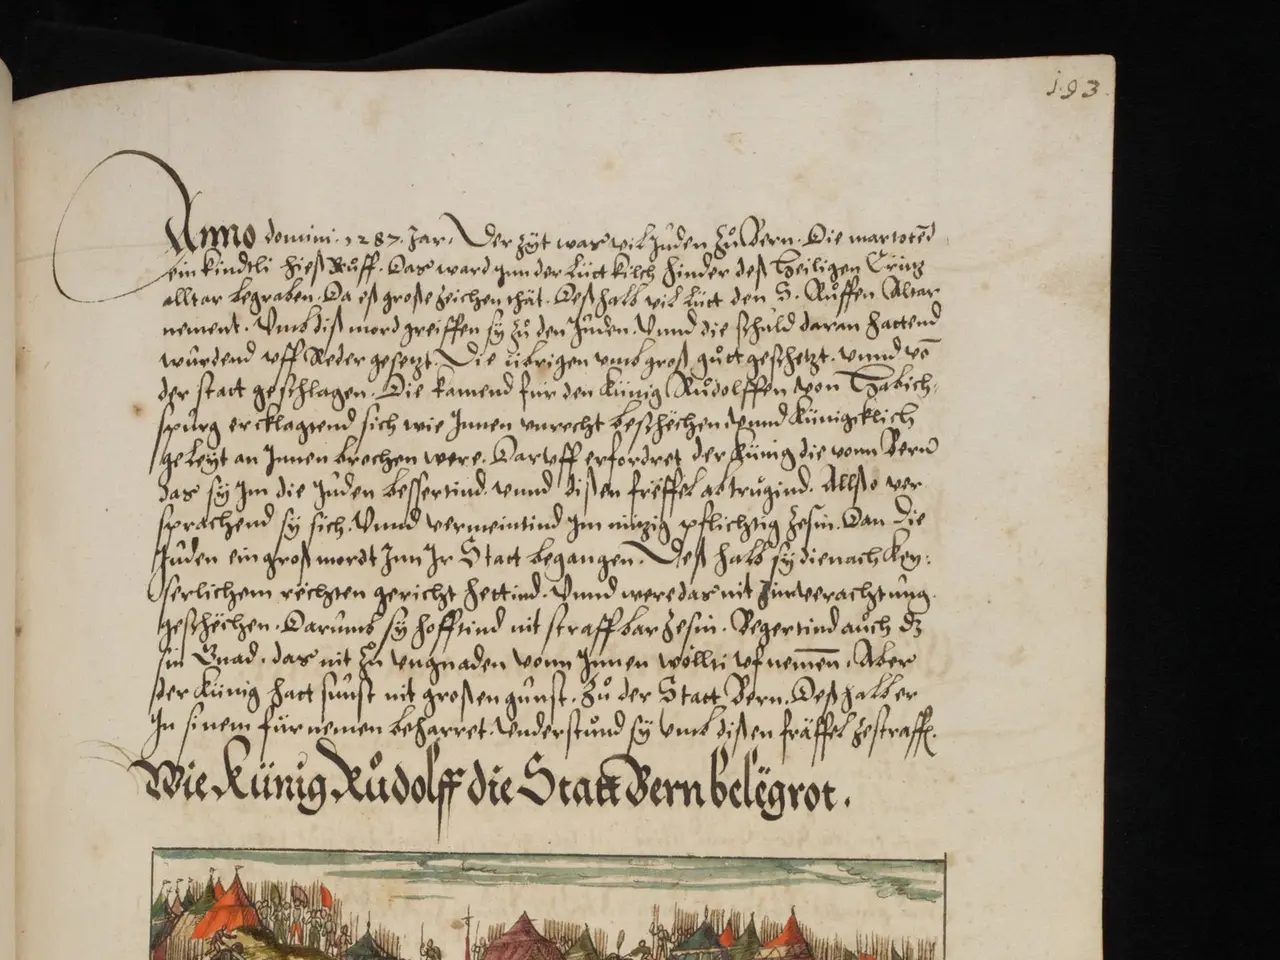 193
Anno domini 1287. Jar. Der Zÿt war vil Juden Zů Bern. Die martotēd
ein kindtli hieß Růff. Das ward ynn der Lüttkilch hinder deß Heiligen Crütz
alltar begraben. Da eß große zeichen thät. Deßhalb vil Lütt den S. Růffen Altar
nement. Umb diß mord greiffen sÿ zů den Juden. Unnd die schuld daran hattend
wurdend uff Reder gesetzt. Die übrigen umb groß gůtt geschetzt. unnd vō
der statt geschlagen. Die kamend für den Künig Růdolffen von Habich-
spurg erklagtend sich wie Innen unrecht beschëchen unnd Künigcklich
geleyt an Innen brochen were. Daruff erfordret der Künig die vonn Bern
das sÿ Im die Juden bessertind unnd dißen fräffel abtrůgind. Allßo ver
sprachend sÿ sich. Unnd vermeintind Im nützig pflichtig zesin. Dan die
Juden ein groß mordt Inn Ir Statt begangen. Deß halb sÿ die nach Key-
serlichem rëchten gericht hettind. Unnd were das nit Zu verachtung
geschëchen. Darumb sÿ hofftind nit straffbar zesin. Begertind auch dz
sin Gnad. das nit zů ungnaden vonn Innen wölltj ufnemen. Aber
der Künig hatt sunst nit großen gunst. Zů der Statt Bern. Deßhalb er
In sinem fürnemen beharret. Understůnd sÿ umb dißen fräffel zestraff.
Wie Künig Růdolff die Statt Bern belëgrot.